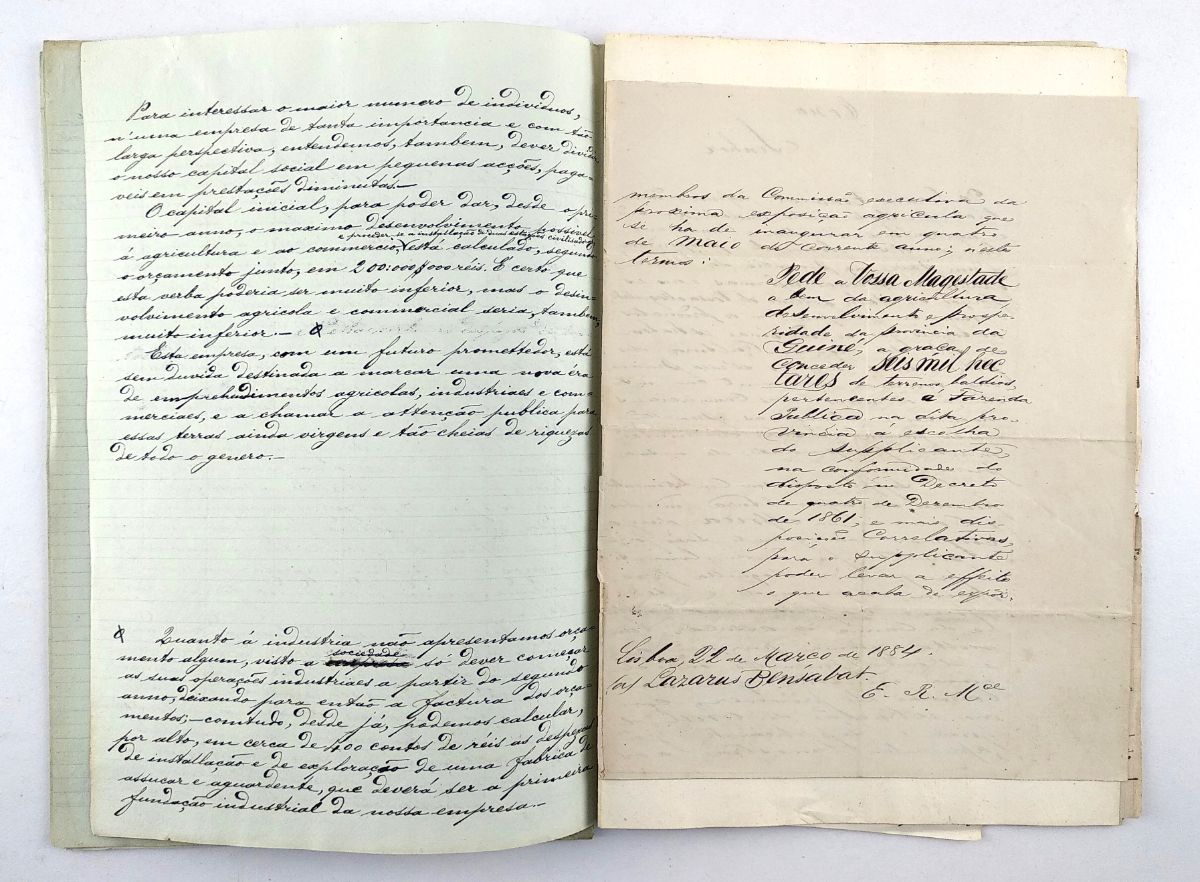 Para interessar o maior numero de individuos,
n'uma empresa de tanta importancia e com tão
larga perspectiva, entendemos, tambem, dever dividir
o nosso capital social em pequenas acções, paga-
veis em prestações diminutas.—
O capital inicial, para poser dar, desde o pri-
meiro anno, o maximo desenvolvimento possivel
á agricultura e ao commercio,
e proceder-se a installação de duas estações civilisadoras
está calculado, segundo
o orçamento junto, em 200:000$000 réis. É certo que
esta verba poderia ser muito inferior, mas o desin-
volvimento agricola e commercial seria, tambem,
muito inferior.—
Esta empresa, com um futuro promettedor, está
sem duvida destinada a marcar uma nova éra
de emprehendimentos agricolas, industriaes e com-
merciaes, e a chamar a attenção publica para
essas terras ainda virgens e tão cheias de riquezas
de todo o genero.—
Quanto á industria não apresentamos orça-
mento algum, visto a sociedade só dever começar
as suas operações industriaes a partir do segundo
anno, deixando para então a factura dos orça-
mentos;—comtudo, desde já, podemos calcular,
por alto, em cerca de 400 contos de réis as despezas
de installação e de exploração de uma fabrica de
assucar e aguardente, que deverá ser a primeira
fundação industrial da nossa empresa.—
membros da Commissão executiva da
proxima exposição agricula que
se ha de inaugurar em quatro
de Maio do corrente anno; n'estes
termos:
Pede a Vossa Magestade
a bem da agricultura,
desenvolvimento e prospe-
ridade da provincia da
Guiné, a graça de
conceder seis mil hec
tares de terrenos baldios,
pertencentes a Fazenda
Publica na dita pro-
vincia á escolha
do supplicante,
na conformidade do
disposto em Decreto
de quatro de Dezembro
de 1861, e mais dis-
posições correlativas,
para o supplicante
poder levar a effeito
o que acaba de expôr.
Lisboa, 22 de Março de 1884.
(a) Lazarus Bensabat.
E. R. M.ce